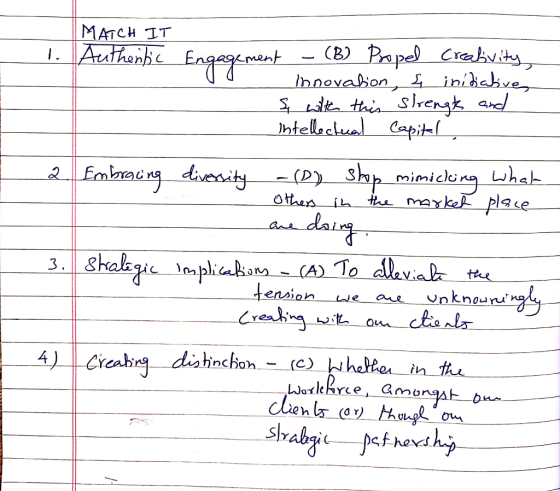 MATCH IT
1. Authentic Engagement - (B) Propel Creativity,
Innovation, & initiative,
& with this strength and
Intellectual Capital.
2 Embracing diversity - (D) Stop mimicking what
others in the market place
are doing.
3. Strategic implications - (A) To alleviate the
tension we are unknowningly
Creating with our clients
4) Creating distinction - (C) Whether in the
Workforce, amongst our
Clients (or) though our
strategic partnership